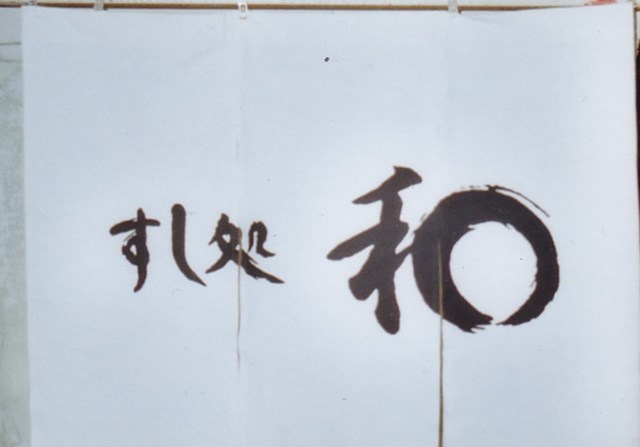 すし処 和